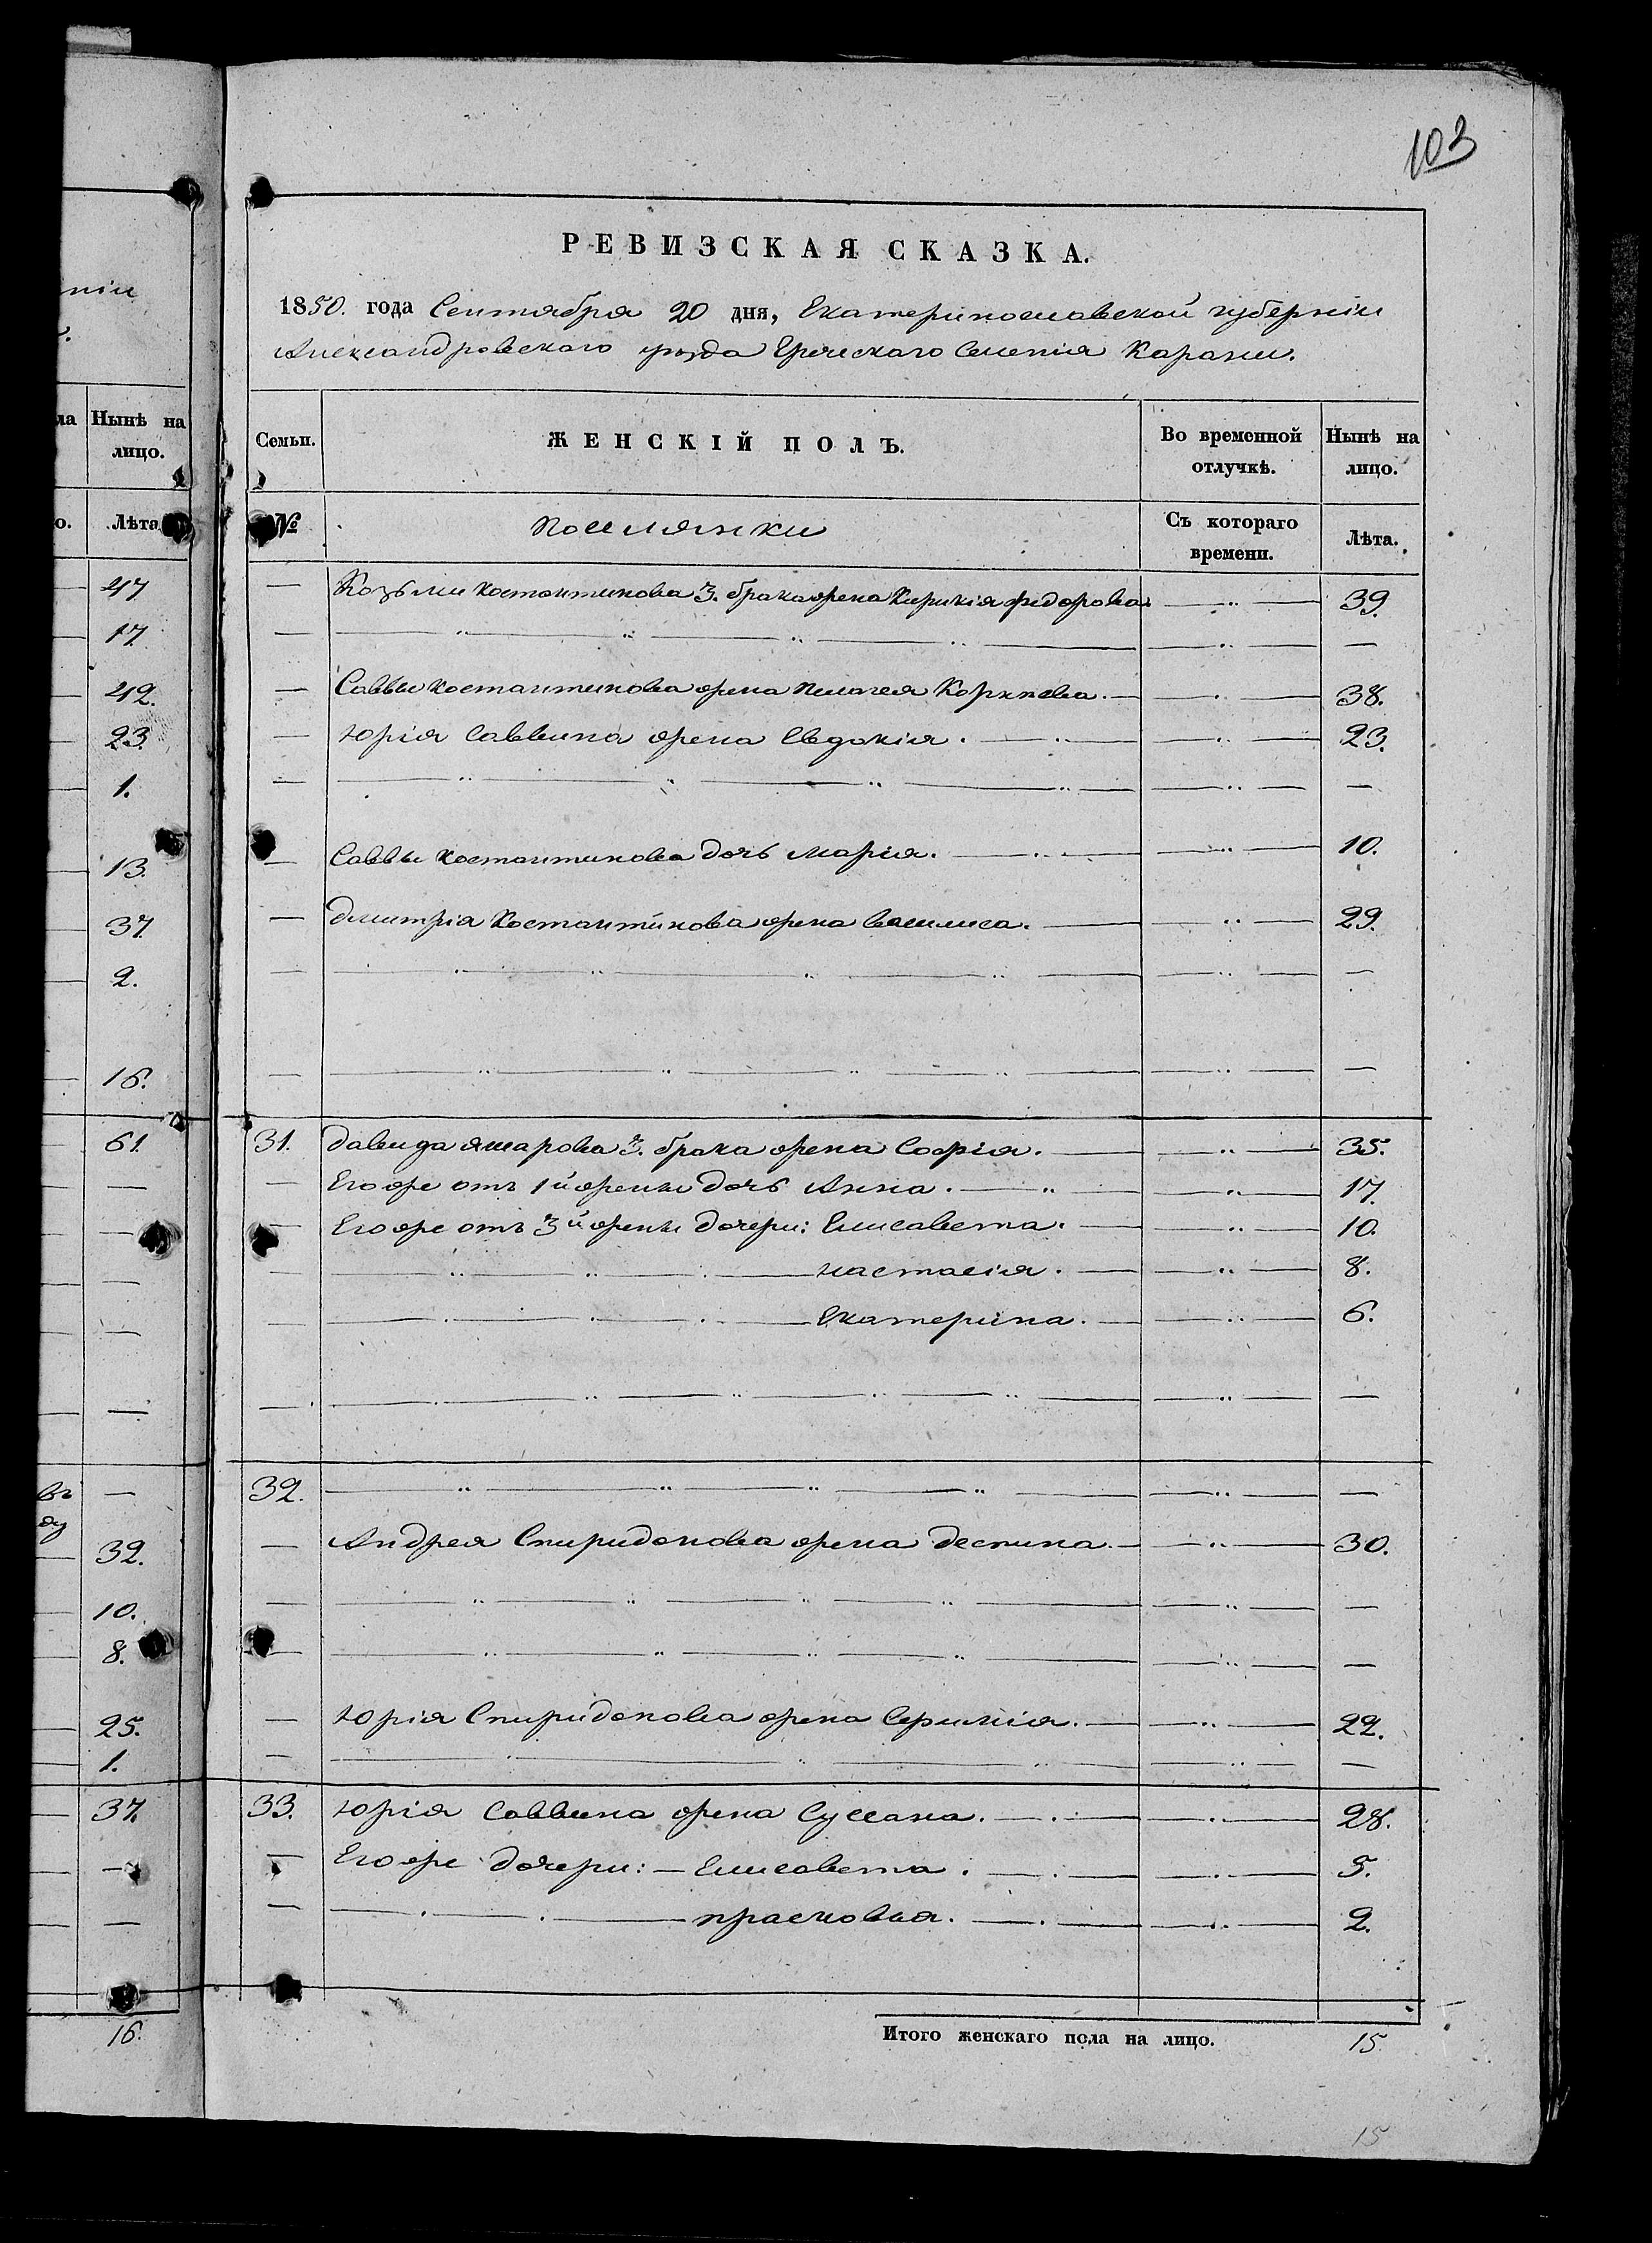 103
РЕВИЗСКАЯ СКАЗКА.
1850. года Сентября 20 дня, Екатеринославской губерніи
Александровскаго уѣзда Греческаго Селенія Карани.
Нынѣ на
лицо.
Лѣта
Семьи. ЖЕНСКІЙ ПОЛЪ. Во временной отлучкѣ. Нынѣ на лицо.
№ Поселянки Съ котораго времени. Лѣта.
47 — Козьми Костантинова 3. брака жена Кирикія Федорова — 39.
17. — — —
42. — Саввы Костантинова жена Пелагея — 38.
23. — Юрія Саввина жена Евдокія. — 23.
1. — — —
13. — Саввы Костантинова дочь Марія. — 10.
37. — Дмитрія Костантинова жена Василиса. — 29.
2. — — —
16. — — —
61. 31. Давида Яшарова 3. брака жена Софія. — 35.
— Его же отъ 1й жены дочь Анна. — 17.
— Его же отъ 3й жены дочери: Елисавета. — 10.
— Настасія. — 8.
— Екатерина. — 6.
— — —
32. — —
32. — Андрея Спиридонова жена Деспина. — 30.
10. — — —
8. — — —
25. — Юрія Спиридонова жена — 22.
1. — — —
37. 33. Юрія Саввина жена Суссана. — 28.
— Его же дочери: — Елисавета. — 5.
— Прасковья. — 2.
16. Итого женскаго пола на лицо. 15.
15